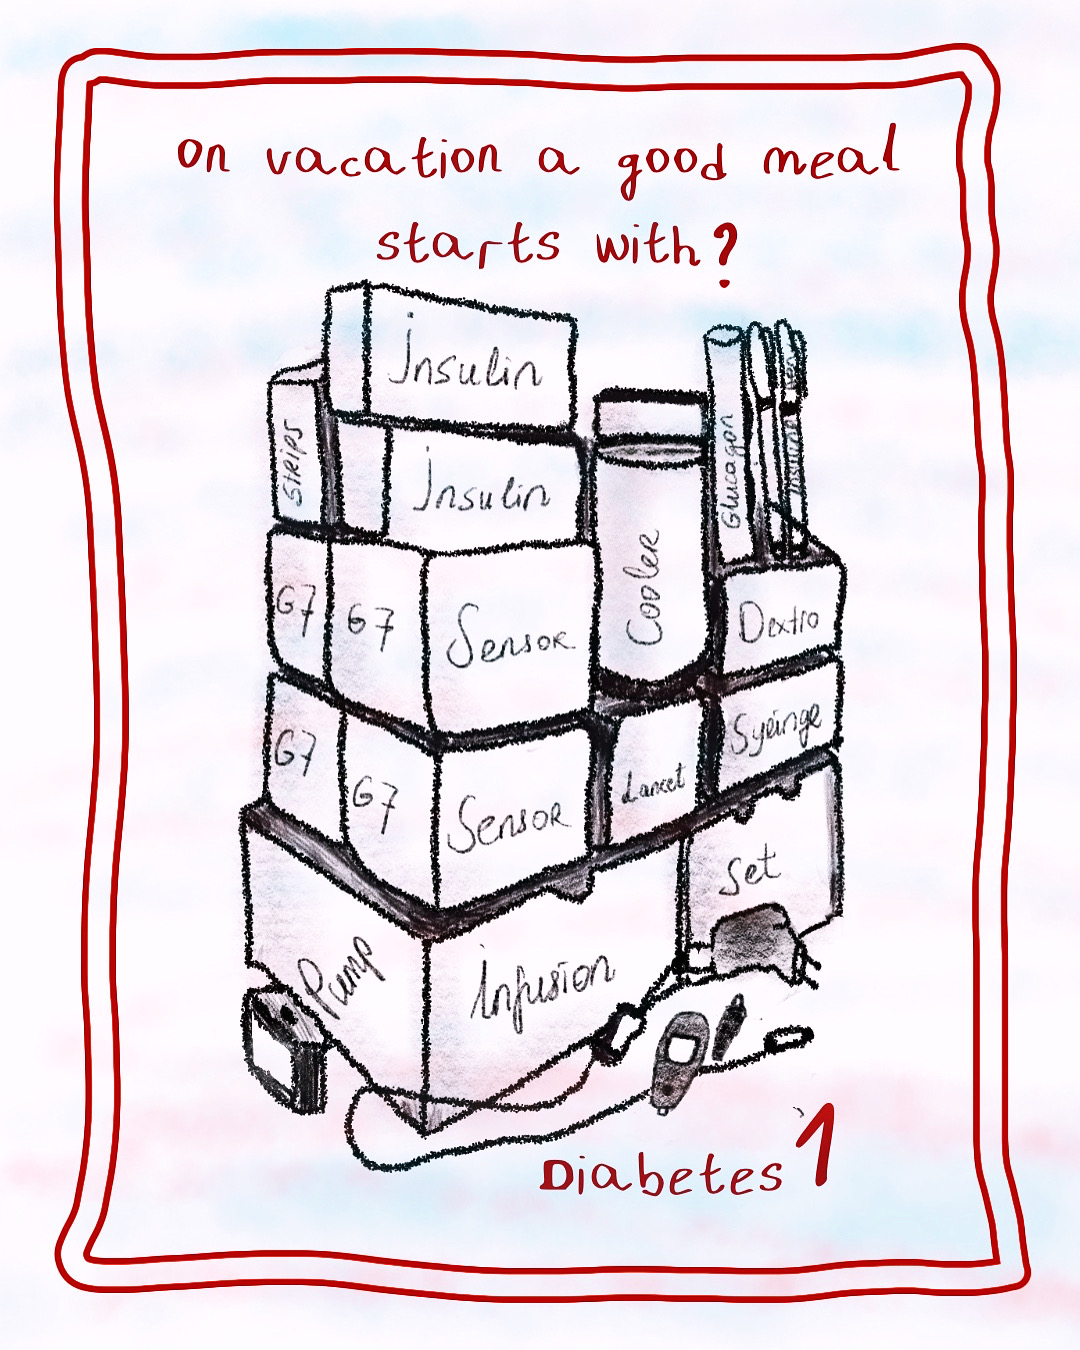 on vacation a good meal
starts with?
Insulin
Strips
Insulin
Glucagon
Insulin Pen
Cooler
G7 G7 Sensor
Dextro
G7 G7 Sensor
Lancet
Syringe
Set
Pump
Infusion
Diabetes 1